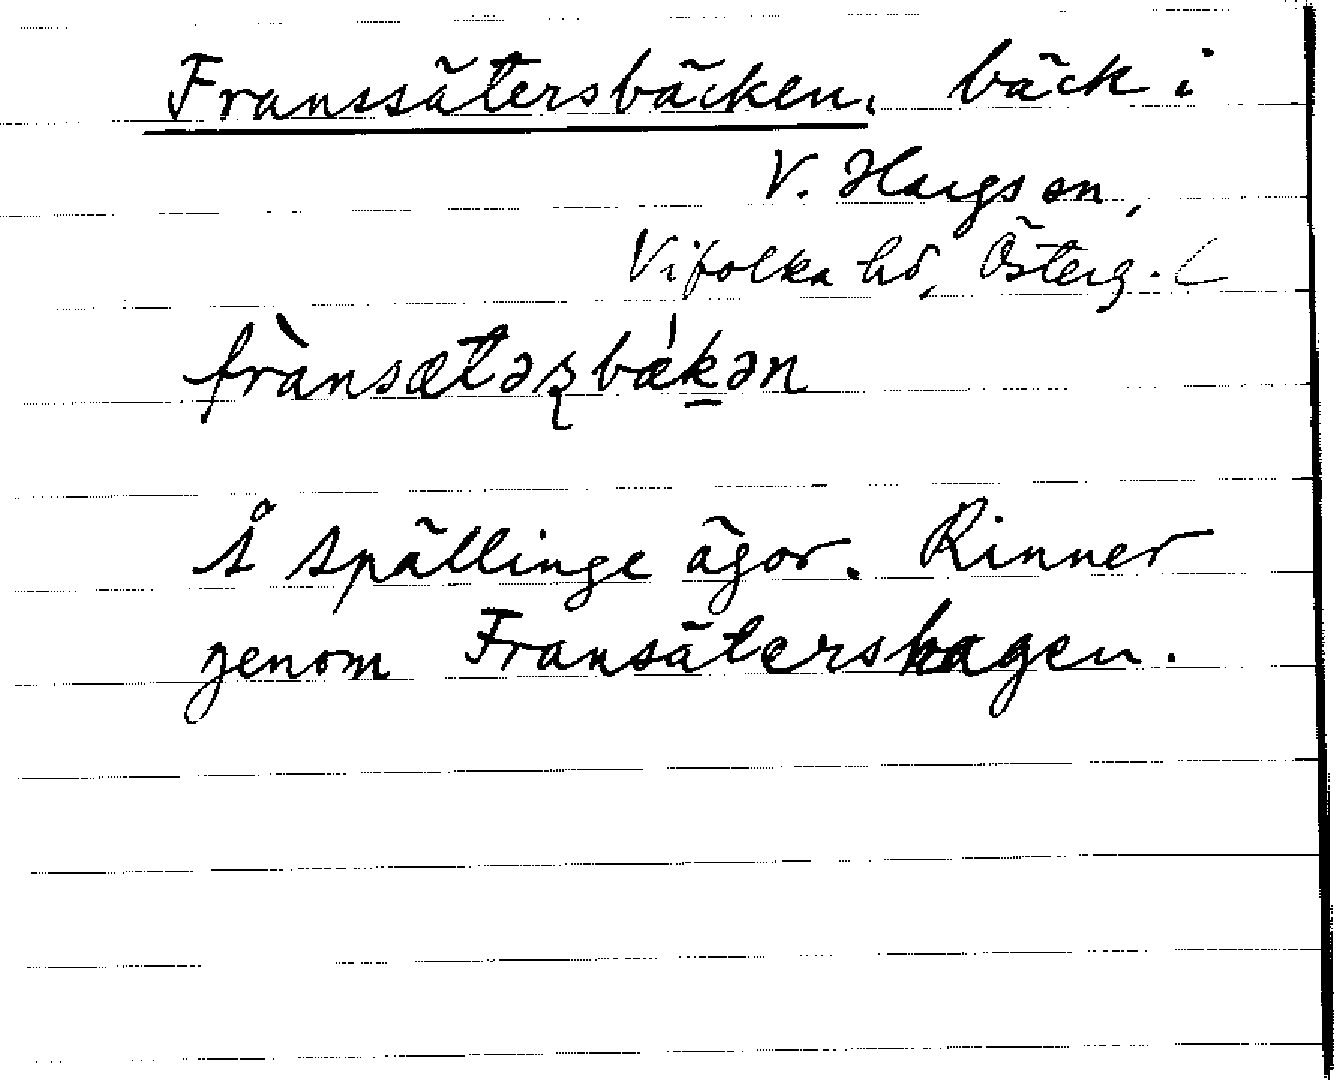 Franssätersbäcken, bäck i
V. Hargs sn,
Vifolka hd, Österg. L
frànsætəʂbæ̀kən
Å Spällinge ägor. Rinner
genom Fransätershagen.